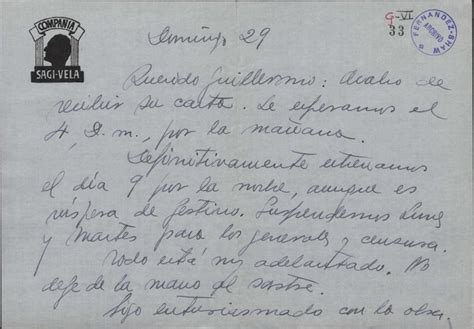 COMPAÑIA
SAGI-VELA
G-VI
33
FERNANDEZ-SHAW
ARCHIVO
Domingo 29
Querido Guillermo: Acabo de
recibir su carta. Le esperamos el
4, D. m., por la mañana.
Definitivamente estrenamos
el día 9 por la noche, aunque es
víspera de festivo. Suspendemos lunes
y martes para los generales y censura.
Todo está muy adelantado. No
deje de la mano al sastre.
Sigo entusiasmado con la obra.